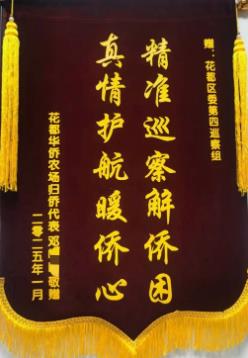 赠：花都区委第四巡察组
精准巡察解侨困
真情护航暖侨心
花都华侨农场归侨代表邓 敬赠
二零二五年一月